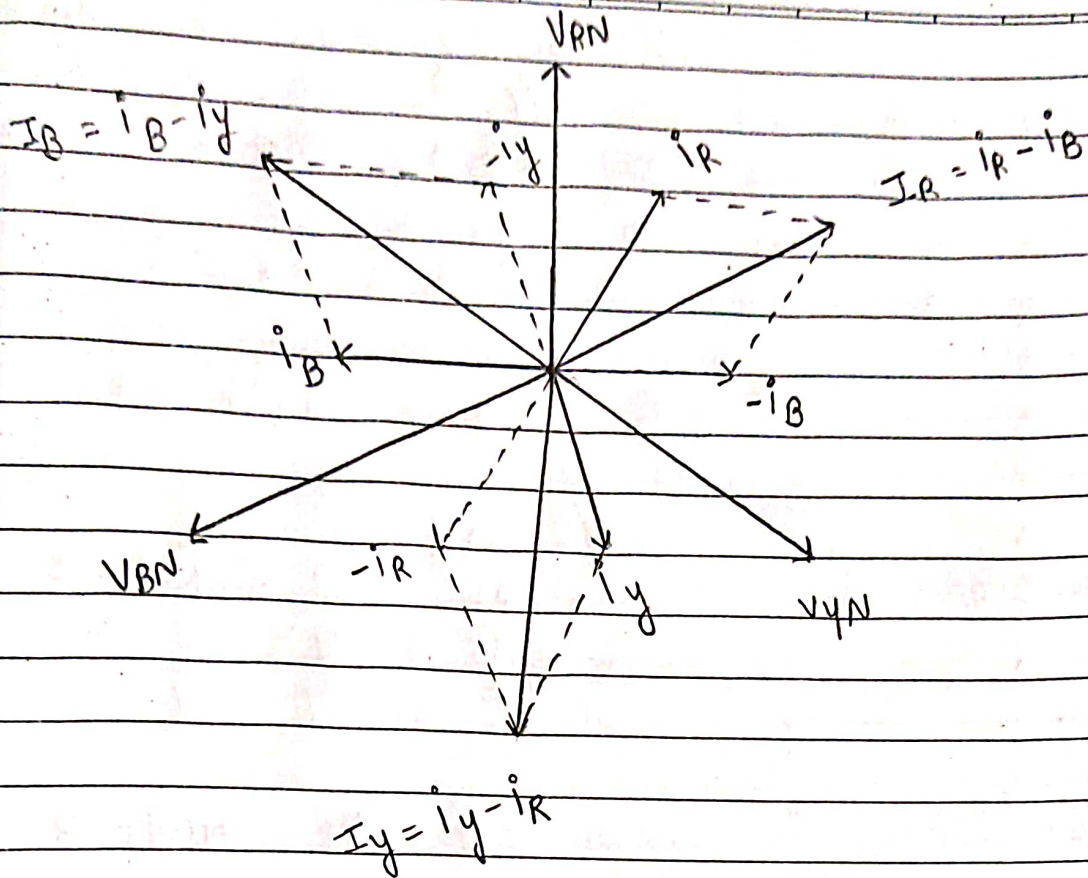 VRN
IB = iB - iy
-iy
iR
IR = iR - iB
iB
-iB
VBN
-iR
iy
VYN
Iy = iy - iR